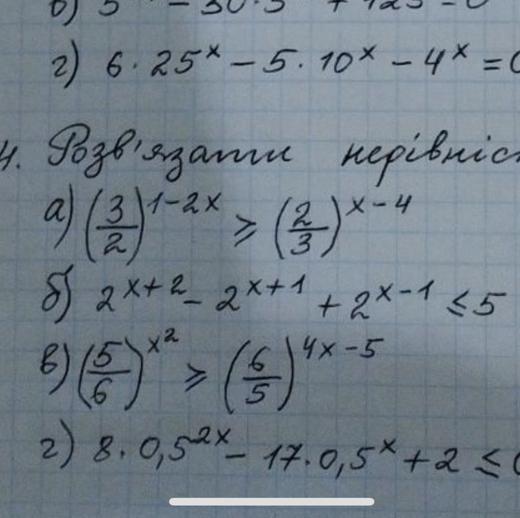 г) 6 · 25^x − 5 · 10^x − 4^x = 0
4. Розв'язати
а) (3/2)^(1−2x) ⩾ (2/3)^(x−4)
б) 2^(x+2) − 2^(x+1) + 2^(x−1) ≤ 5
в) (5/6)^(x²) ⩾ (6/5)^(4x−5)
г) 8 · 0,5^(2x) − 17 · 0,5^x + 2 ≤ 0